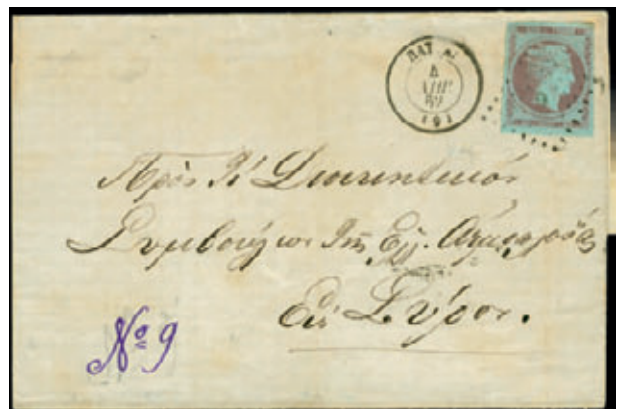 (9)
Πρὸς τὸ Διοικητικὸν
Συμβούλιον τῆς Ἑλ. Ἀτμοπλοΐας
Εἰς Σύρον.
Nº 9